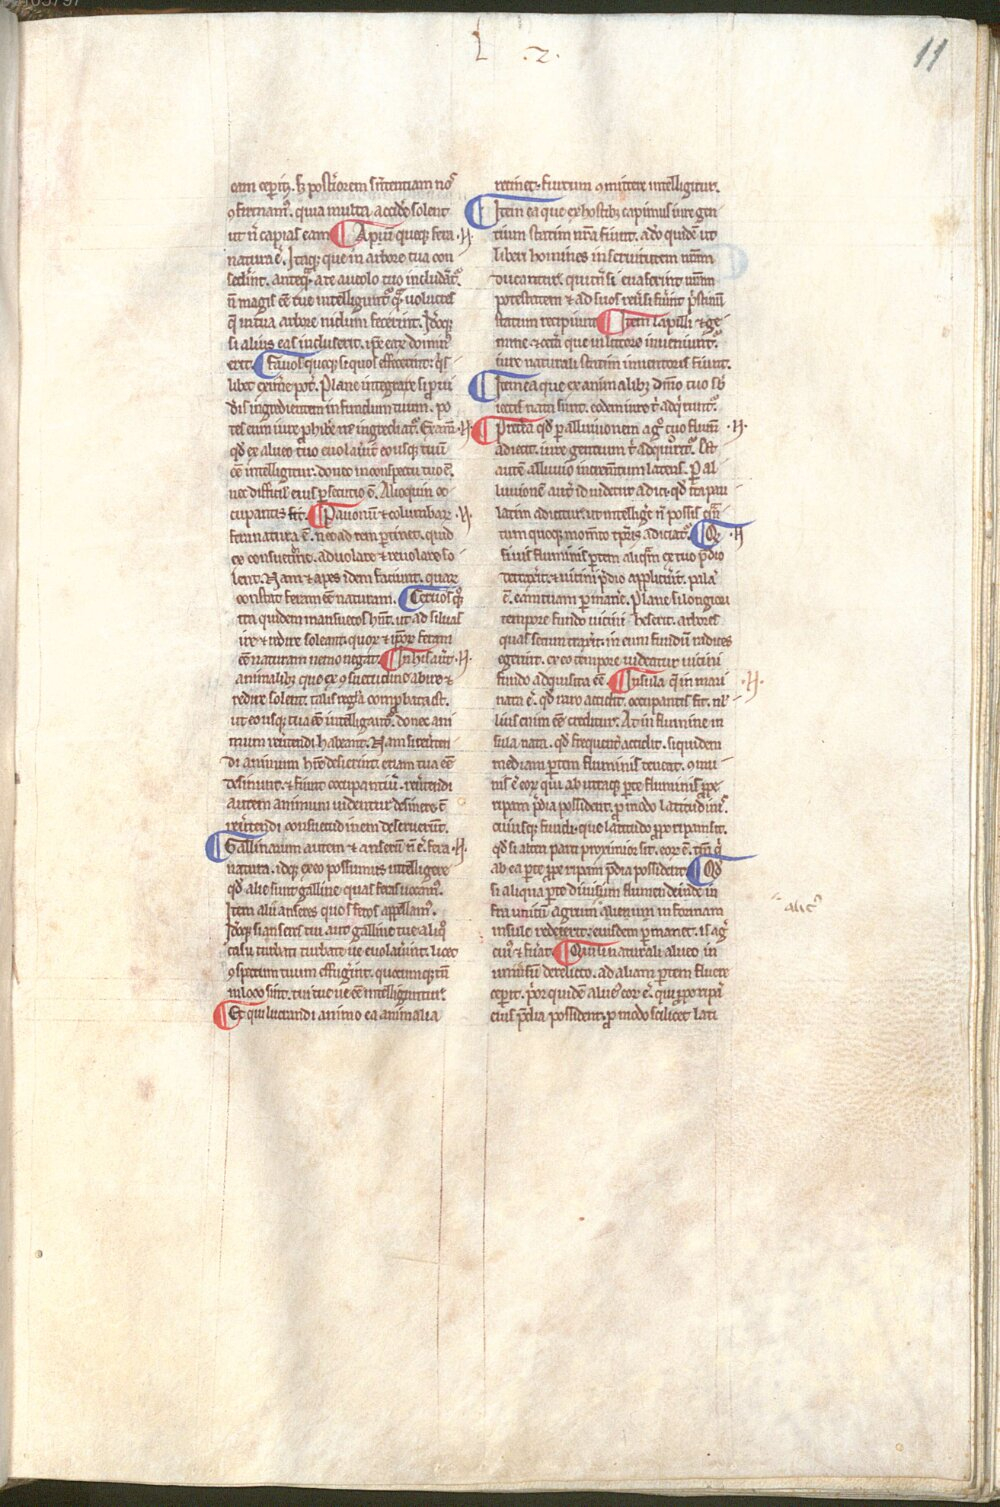 L .2.
11
eam ceperis. sꝫ posteriorem sñtentiam nos
ɔfirmamꝰ. quia multa accidere solent
ut ñ capias eam. Apium quoqꝫ fera
natura ē. Itaqꝫ que in arbore tua con
sederint. anteqͣ a te alueolo tuo includãtᷣ.
ñ magis ēē tue intelligunt̉ qͣ uolucres
q̃ in tua arbore nidum fecerint. Ideoqꝫ
si alius eas incluserit. ip̃e eaꝝ domin̉
erit. Fauos quoqꝫ si quos effecerint. qͥs
libet eximere pot̃. Plane integra re si p̃ui
d̾is ingredientem in fundum tuum. po
tes eum iure ꝓhibere ne ingrediat̉. Examẽ
qd̾ ex alueo tuo euolauerit eo usqꝫ tuũ
ēē intelligitur. donec in conspectu tuo ē.
nec difficil̾ eius ꝑsecutio ē. Alioquin oc
cupantis fit. Pauonũ ⁊ columbaꝝ
fera natura ē. nec ad rem pertinet. quid
ex consuetudine. aduolare ⁊ reuolare so
lent. Nam ⁊ apes idem faciunt. quaꝝ
constat feram ēē naturam. Ceruos qͦꝫ
ita quidem mansuetos hñt. ut ad siluas
ire ⁊ redire soleant. quoꝝ ⁊ ip̃oꝝ feram
ēē naturam nemo negat. In his aut̃
animalibꝫ que ex ɔsuetudine abire ⁊
redire solent. talis regl̾a comꝓbata est.
ut eo usqꝫ tua ēē intelligant̉. donec ani
mum reuertendi habeant. Nam si reuerten
di animum hr̃e desierint. etiam tua ēē
desinunt. ⁊ fiunt occupantiũ. reuertendi
autem animum uidentur desinere. c̃
reuertendi consuetudinem deseruerint.
Gallinarum autem ⁊ anserũ ñ ē. fera
natura. idqꝫ ex eo possumus intelligere
qd̾ alie sunt galline. quas feras uocamꝰ.
Item alii anseres quos feros appellamꝰ.
Ideoqꝫ si anseres tui. aut galline tue aliqͦ
casu turbati turbate ue euolauerint. licet
ɔspectum tuum effugerint. quocumqꝫ tñ
in loco sint. tui tue ue ēē intelliguntur.
Et qui lucrandi animo ea animalia
retinet. furtum ɔmittere intelligitur.
Item ea que ex hostibꝫ capimus iure gen
tium statim nr̃a fiunt. adeo quidẽ ut
liberi homines in seruitutem nr̃am
ducantur. qui tñ si euaserint nr̃am
potestatem ⁊ ad suos reuersi fuerint pristinũ
statum recipiunt. Item lapilli ⁊ ge
mme. ⁊ cetera que in littore inueniunt̉.
iure naturali statim inuentoris fiunt.
Item ea que ex animalibꝫ dñio tuo sb̾
iectis nata sunt. eodem iure t̾ adqͥrunt̉.
Preterea qd̾ ꝑ alluuionem agͦ tuo flumẽ
adiecit. iure gentium t̾ adquirit̉. Est
autẽ alluuio incrementum latens. Ꝑ al
luuionẽ aut̃ id uidetur adici. qd̾ ita pau
latim adicitur. ut intellige ñ possis qñ
tum quoqꝫ momẽto tꝑris adiciat̉. Qd̾
si uis fluminis ꝑtem aliqͣm ex tuo p̃dio
detraxerit. ⁊ uicini p̃dio applicuerit. palã
ē. eam tuam ꝑmanere. Plane si longiori
tempore fundo uicini heserit. arbores
quas secum traxerit. in eum fundũ radices
egerint. ex eo tempore uideatur uicini
fundo adquisita ēē. Insula q̃ in mari
nata ē. qd̾ raro accidit. occupantis fit. nl̾
lius enim ēē creditur. At in flumine in
sula nata. qd̾ frequenter accidit. siquidem
mediam ꝑtem fluminis teneat. ɔmu
nis ē eoꝝ qui ab utraqꝫ ꝑte fluminis ꝓpe
ripam p̃dia possident. ꝓ modo latitudinis
cuiusqꝫ fundi. que latitudo ꝓpe ripam sit.
qd̾ si alteri parti proximior sit. eoꝝ ē. tm̃ q̃
ab ea ꝑte ꝓpe ripam p̃dia possident. Qd̾
si aliqua ꝑte diuisum flumen deinde in
fra unitũ agrum alienum in formam
insule redegerit. eiusdem ꝑmanet. is ag̾
cuiꝰ ⁊ fuerat. Quod si naturali alueo in
uniu̾sũ derelicto. ad aliam ꝑtem fluere
ceperit. prior quidẽ alueꝰ eoꝝ ē. qui ꝓpe ripã
eius p̃dia possident. ꝓ modo scilicet lati